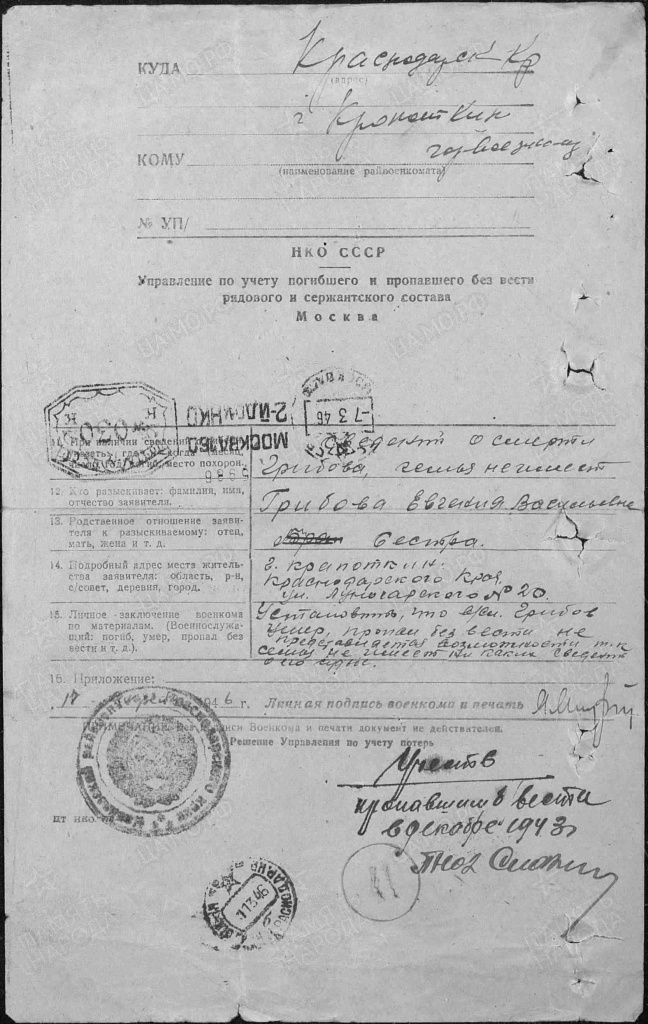 КУДА Краснодарск Кр
(адрес)
г Кропоткин
КОМУ горвоенком
(наименование райвоенкомата)
№ УП/
НКО СССР
Управление по учету погибшего и пропавшего без вести
рядового и сержантского состава
Москва
МОСКВА 150
2-Й Д. НКО
-7 3 46
При наличии сведений
место похорон.
Сведений о смерти
Грибова, семья не имеет
12. Кто разыскивает: фамилия, имя,
отчество заявителя.
Грибова Евгения Васильевна
13. Родственное отношение заяви-
теля к разыскиваемому: отец,
мать, жена и т. д.
Сестра.
14. Подробный адрес места житель-
ства заявителя: область, р-н,
с/совет, деревня, город.
г. Крапоткин.
Краснодарского Края
ул. Луночарского № 20.
15. Личное заключение военкома
по материалам. (Военнослужа-
щий: погиб, умер, пропал без
вести и т. д.).
Установить, что в/сл. Грибов
Умер, пропал без вести не
представляется возможности т.к
семья не имеет ни каких сведений
о нем
16. Приложение:
17 1946 г. Личная подпись военкома и печать
Военкома и печати документ не действителен.
Решение Управления по учету потерь
Учесть
пропавшим б вести
в декабре 1943г
пно2
41
КРАСНОДАРСК